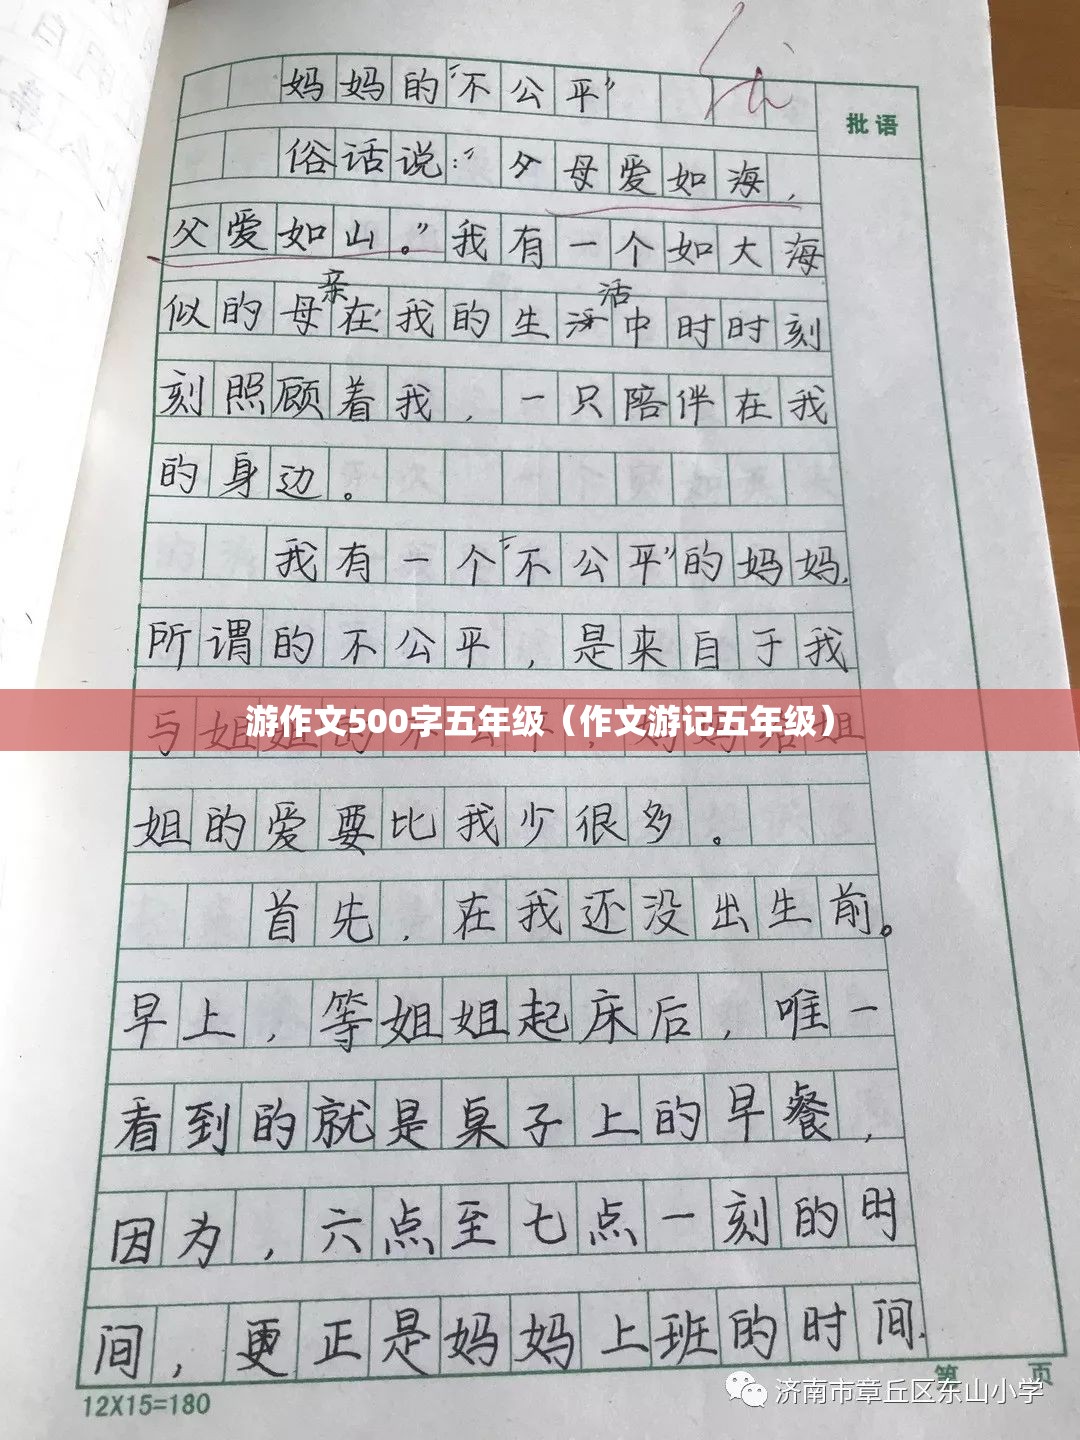 妈妈的“不公平”
批语
俗话说：“父母爱如海，
父爱如山。”我有一个如大海
似的母亲在我的生活中时时刻
刻照顾着我，一只陪伴在我
的身边。
我有一个“不公平”的妈妈，
所谓的不公平，是来自于我
与姐姐的不公平，妈妈给姐
游作文500字五年级（作文游记五年级）
姐的爱要比我少很多。
首先，在我还没出生前。
早上，等姐姐起床后，唯一
看到的就是桌子上的早餐，
因为，六点至七点一刻的时
间，更正是妈妈上班的时间.
第 页
12X15=180
济南市章丘区东山小学